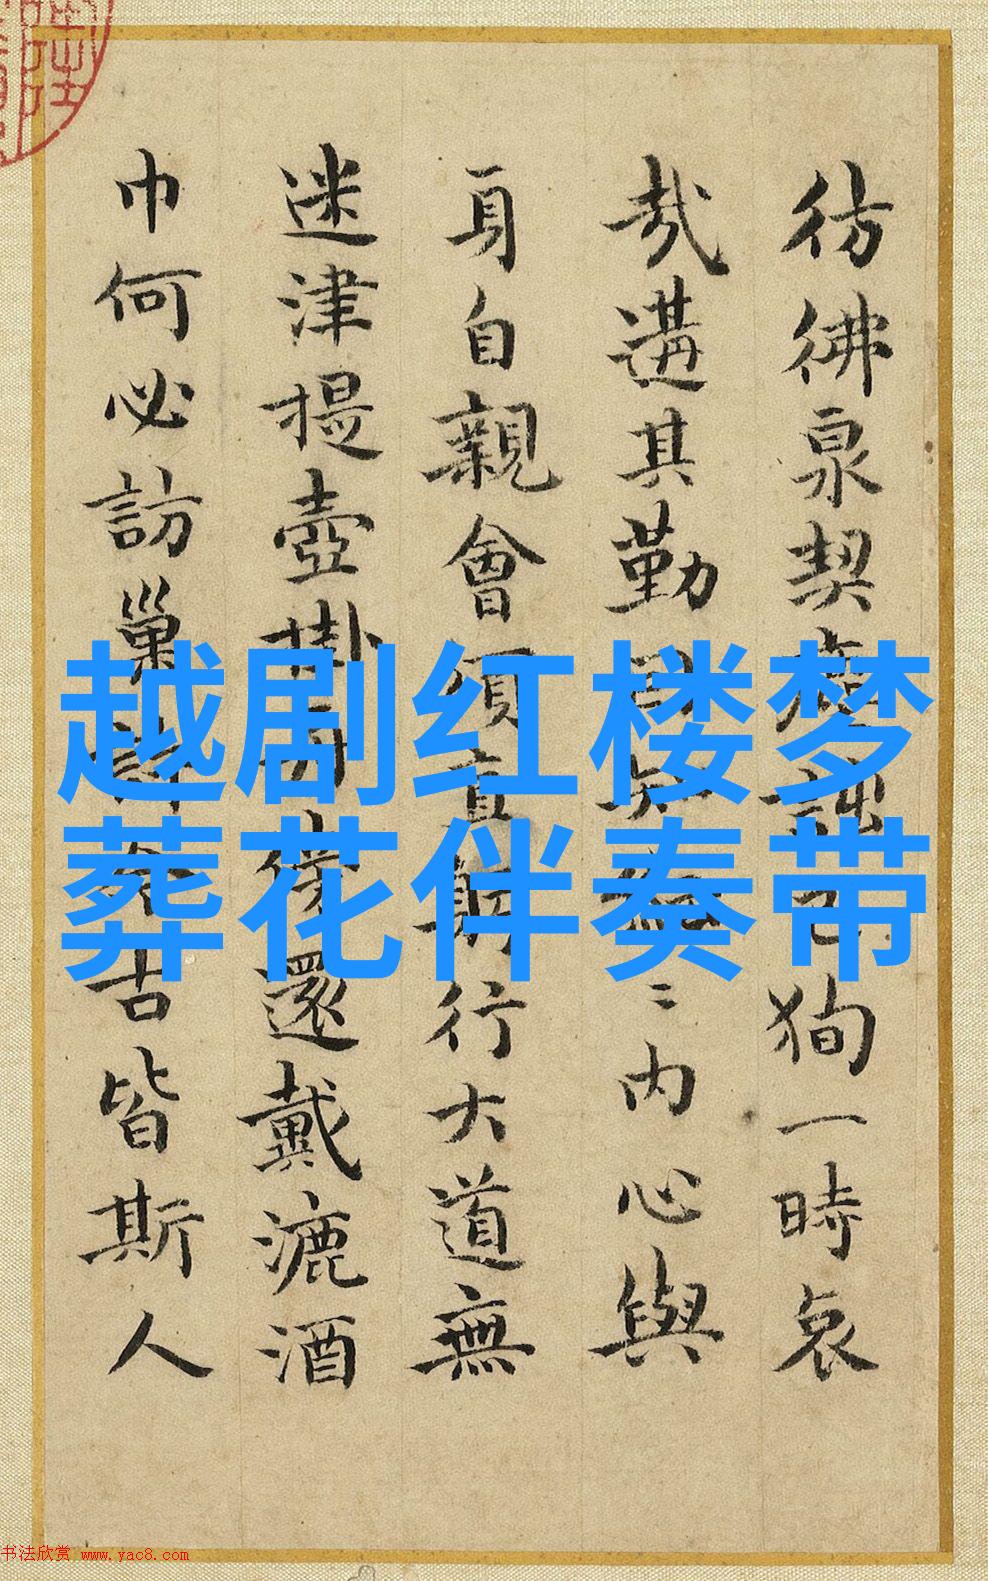 越剧红楼梦
葬花伴奏带
彷彿泉契
狥一時哀
哉遘其勤
〻内心與
身自親會須直躬行大道無
迷津提壺掛
還戴漉酒
巾何必訪巢
古皆斯人
书法欣赏 www.yac8.com